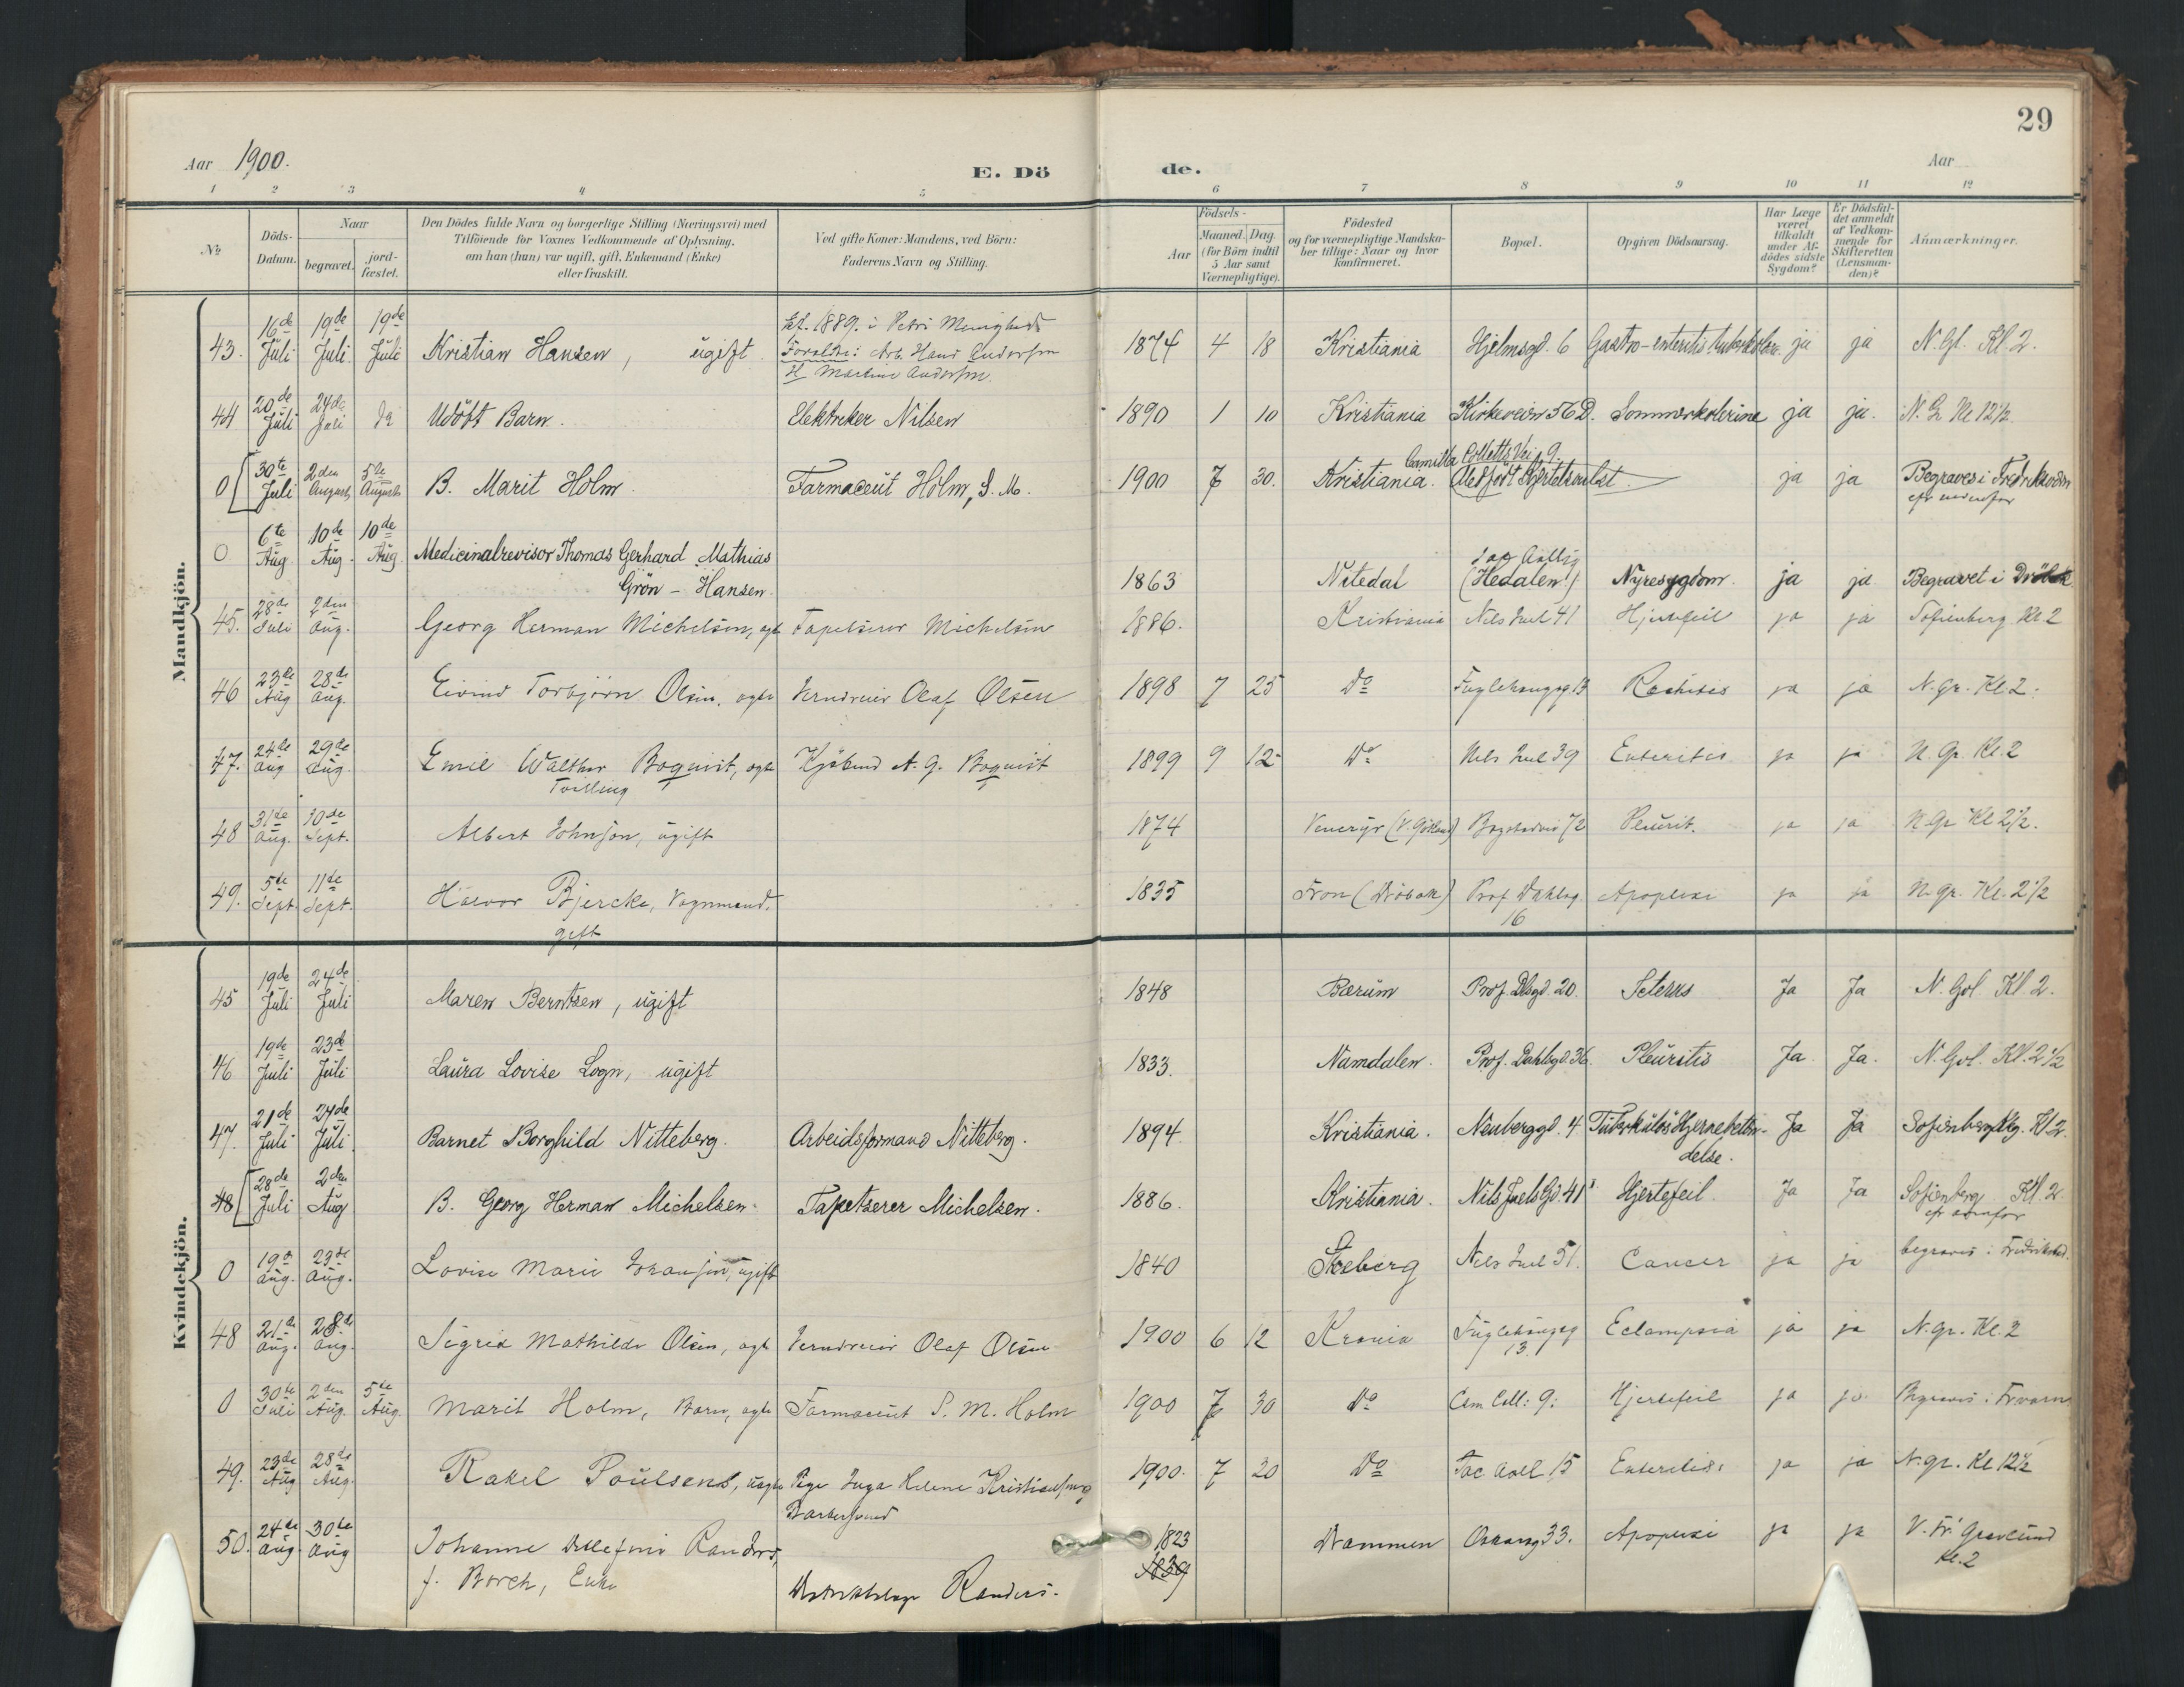 29
Aar 1900.
E. Dö
de.
Aar
1 2 3 4 5 6 7 8 9 10 11 12
No
Döds-Datum.
Naar
begravet.
jord-fæstet.
Den Dödes fulde Navn og borgerlige Stilling (Næringsvei) med
Tilföiende for Voxnes Vedkommende af Oplysning,
om han (hun) var ugift, gift, Enkemand (Enke)
eller fraskilt.
Ved gifte Koner: Mandens, ved Börn:
Faderens Navn og Stilling.
Aar
Födsels-
Maaned. Dag.
(for Börn indtil
5 Aar samt
Værnepligtige).
Födested
og for værnepligtige Mandska-
ber tillige: Naar og hvor
konfirmeret.
Bopæl.
Opgiven Dödsaarsag.
Har Læge
været
tilkaldt
under Af-
dödes sidste
Sygdom?
Er Dödsfal-
det anmeldt
af Vedkom-
mende for
Skifteretten
(Lensman-
den)?
Anmærkninger.
Mandkjön.
43. 16de Juli 19de Juli 19de Juli Kristian Hansen, ugift. 1889 i Petri Menighed Forældre: Arb. Hans Anderssen Martine Anderssen 1874 4 18 Kristiania Hjelmsgd. 6 Gastro-enteritis ja ja N. Gl. Kl 2.
44 20de Juli 24de Juli Udöbt Barn. Elektriker Nilsen 1890 1 10 Kristiania Kirkeveien 56 D. Sommerkolerine ja ja. N. G Kl 12½
0 30te Juli 2den August 5te August B. Marit Holm. Farmaceut Holm, S. M. 1900 7 30. Kristiania. Camilla Colletts Vei 9. ja ja Begraves i Fredriksværn
0 6te Aug. 10de Aug. 10de Aug. Medicinalrevisor Thomas Gerhard Mathias
Grön-Hansen. 1863 Nitedal (Hedalen!) Nyresygdom. ja ja Begravet i Dröbak
45. 28de Juli 2den Aug. Georg Herman Michelsen, egte Tapetserer Michelsen 1886. Kristiania Nils Juel 41 Hjertefeil ja ja Sofienberg Kl. 2
46 23de Aug 28de Aug. Eivind Torbjörn Olsen, egte Olaf Olsen 1898 7 25 Do Fuglehaugsg. 13 Rachitis ja ja N. Gr. Kl. 2.
47. 24de Aug 29de Aug. Emil Walther Boquist, egte Kjöbmd A. G. Boquist 1899 9 12 Do Nils Juel 39 Enteritis ja ja N. Gr. Kl. 2
Tvilling
48 31te Aug. 10de Sept. Albert Johnson, ugift 1874 Veneryr (V. Götland) Bogstadvei 72 Pleurit. ja ja N. Gr Kl 2½.
49. 5te Sept. 11de Sept. Halvor Bjercke, Vognmand. 1835 Fron (Dröbak) Prof Dahlsg 16 Apoplexi ja ja N. gr. Kl. 2½
gift
Kvindekjön.
45 19de Juli 24de Juli Maren Berntsen, ugift 1848 Bærum Prof. Dlsgd. 20. Icterus Ja Ja N. Gvl. Kl 2.
46 19de Juli 23de Juli Laura Lovise Logn, ugift 1833. Namdalen. Prof. Dahlsgd. 36. Pleuritis Ja. Ja. N. Gvl. Kl. 2½
47. 21de Juli 24de Juli Barnet Borghild Nitteberg. Arbeidsformand Nitteberg. 1894. Kristiania. Neuberggd. 4. Tuberkulös Hjernebetæn-
delse. Ja Ja Sofienberg Kl 2.
48 28de Juli 2den Aug B. Georg Herman Michelsen. Tapetserer Michelsen. 1886. Kristiania. Nils Juels Gd. 41 Hjertefeil. Ja Ja Sofienberg Kl. 2
0 19de Aug. 23de Aug. Lovise Marie Johansen, ugift 1840 Skeberg Nils Juel 51. Cancer ja ja begraves i Fredrikstad.
48 21de Aug. 28de Aug. Sigrid Mathilde Olsen, egte Olaf Olsen 1900 6 12 Krania Fuglehaugsg 13. Eclampsia ja ja N. gr. Kl. 2
0 30te Juli 2den Aug. 5te Aug. Marit Holm, Barn, egte Farmaceut S. M. Holm 1900 7 30 Do Cam Coll: 9: Hjertefeil ja ja Begraves i Frværn
49. 23de Aug 28de Aug. Rakel Poulsen, uegte Pige Inga Helene Kristiansen 1900. 7 20 Do Jac Aall 15 Enteritis ja ja N. gr. Kl 12½
50. 24de Aug. 30te Aug Johanne Randers, 1823 1839 Drammen Oskarsg 33. Apoplexi ja ja V. Fr. Gravlund
f. Borch, Enke Distriktslæge Randers. Kl. 2